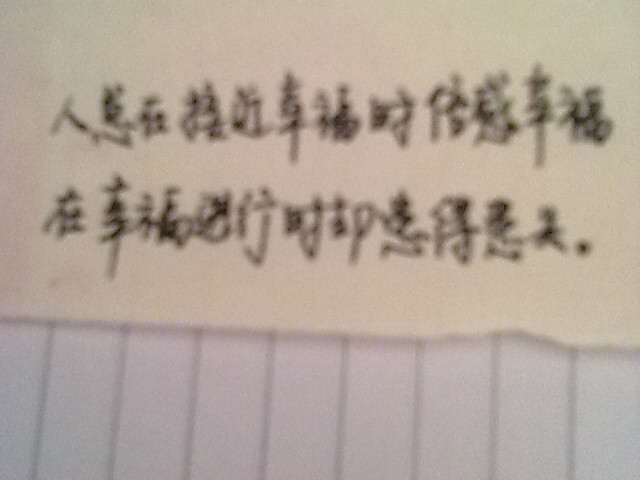 人总在接近幸福时倍感幸福
在幸福进行时却患得患失。